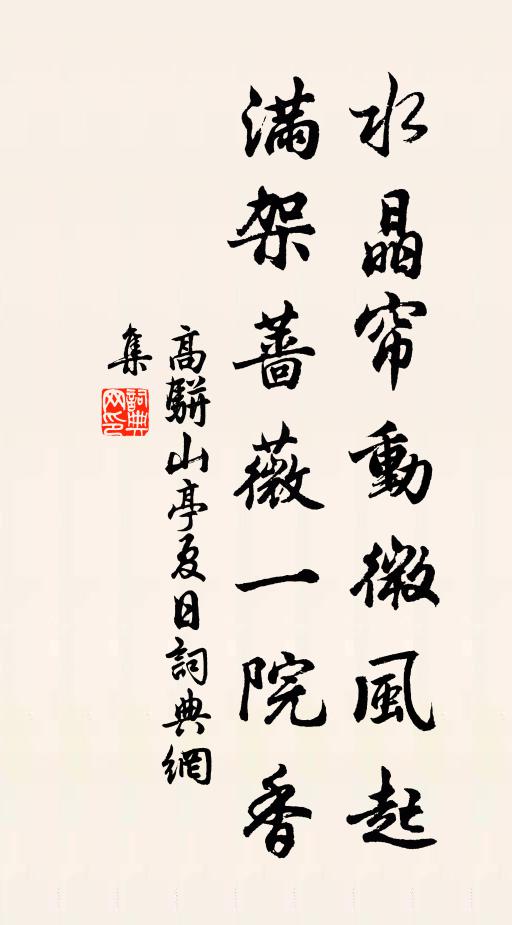 水晶帘動微風起
滿架薔薇一院香
高駢山亭夏日詞典網
集
詞典
网印